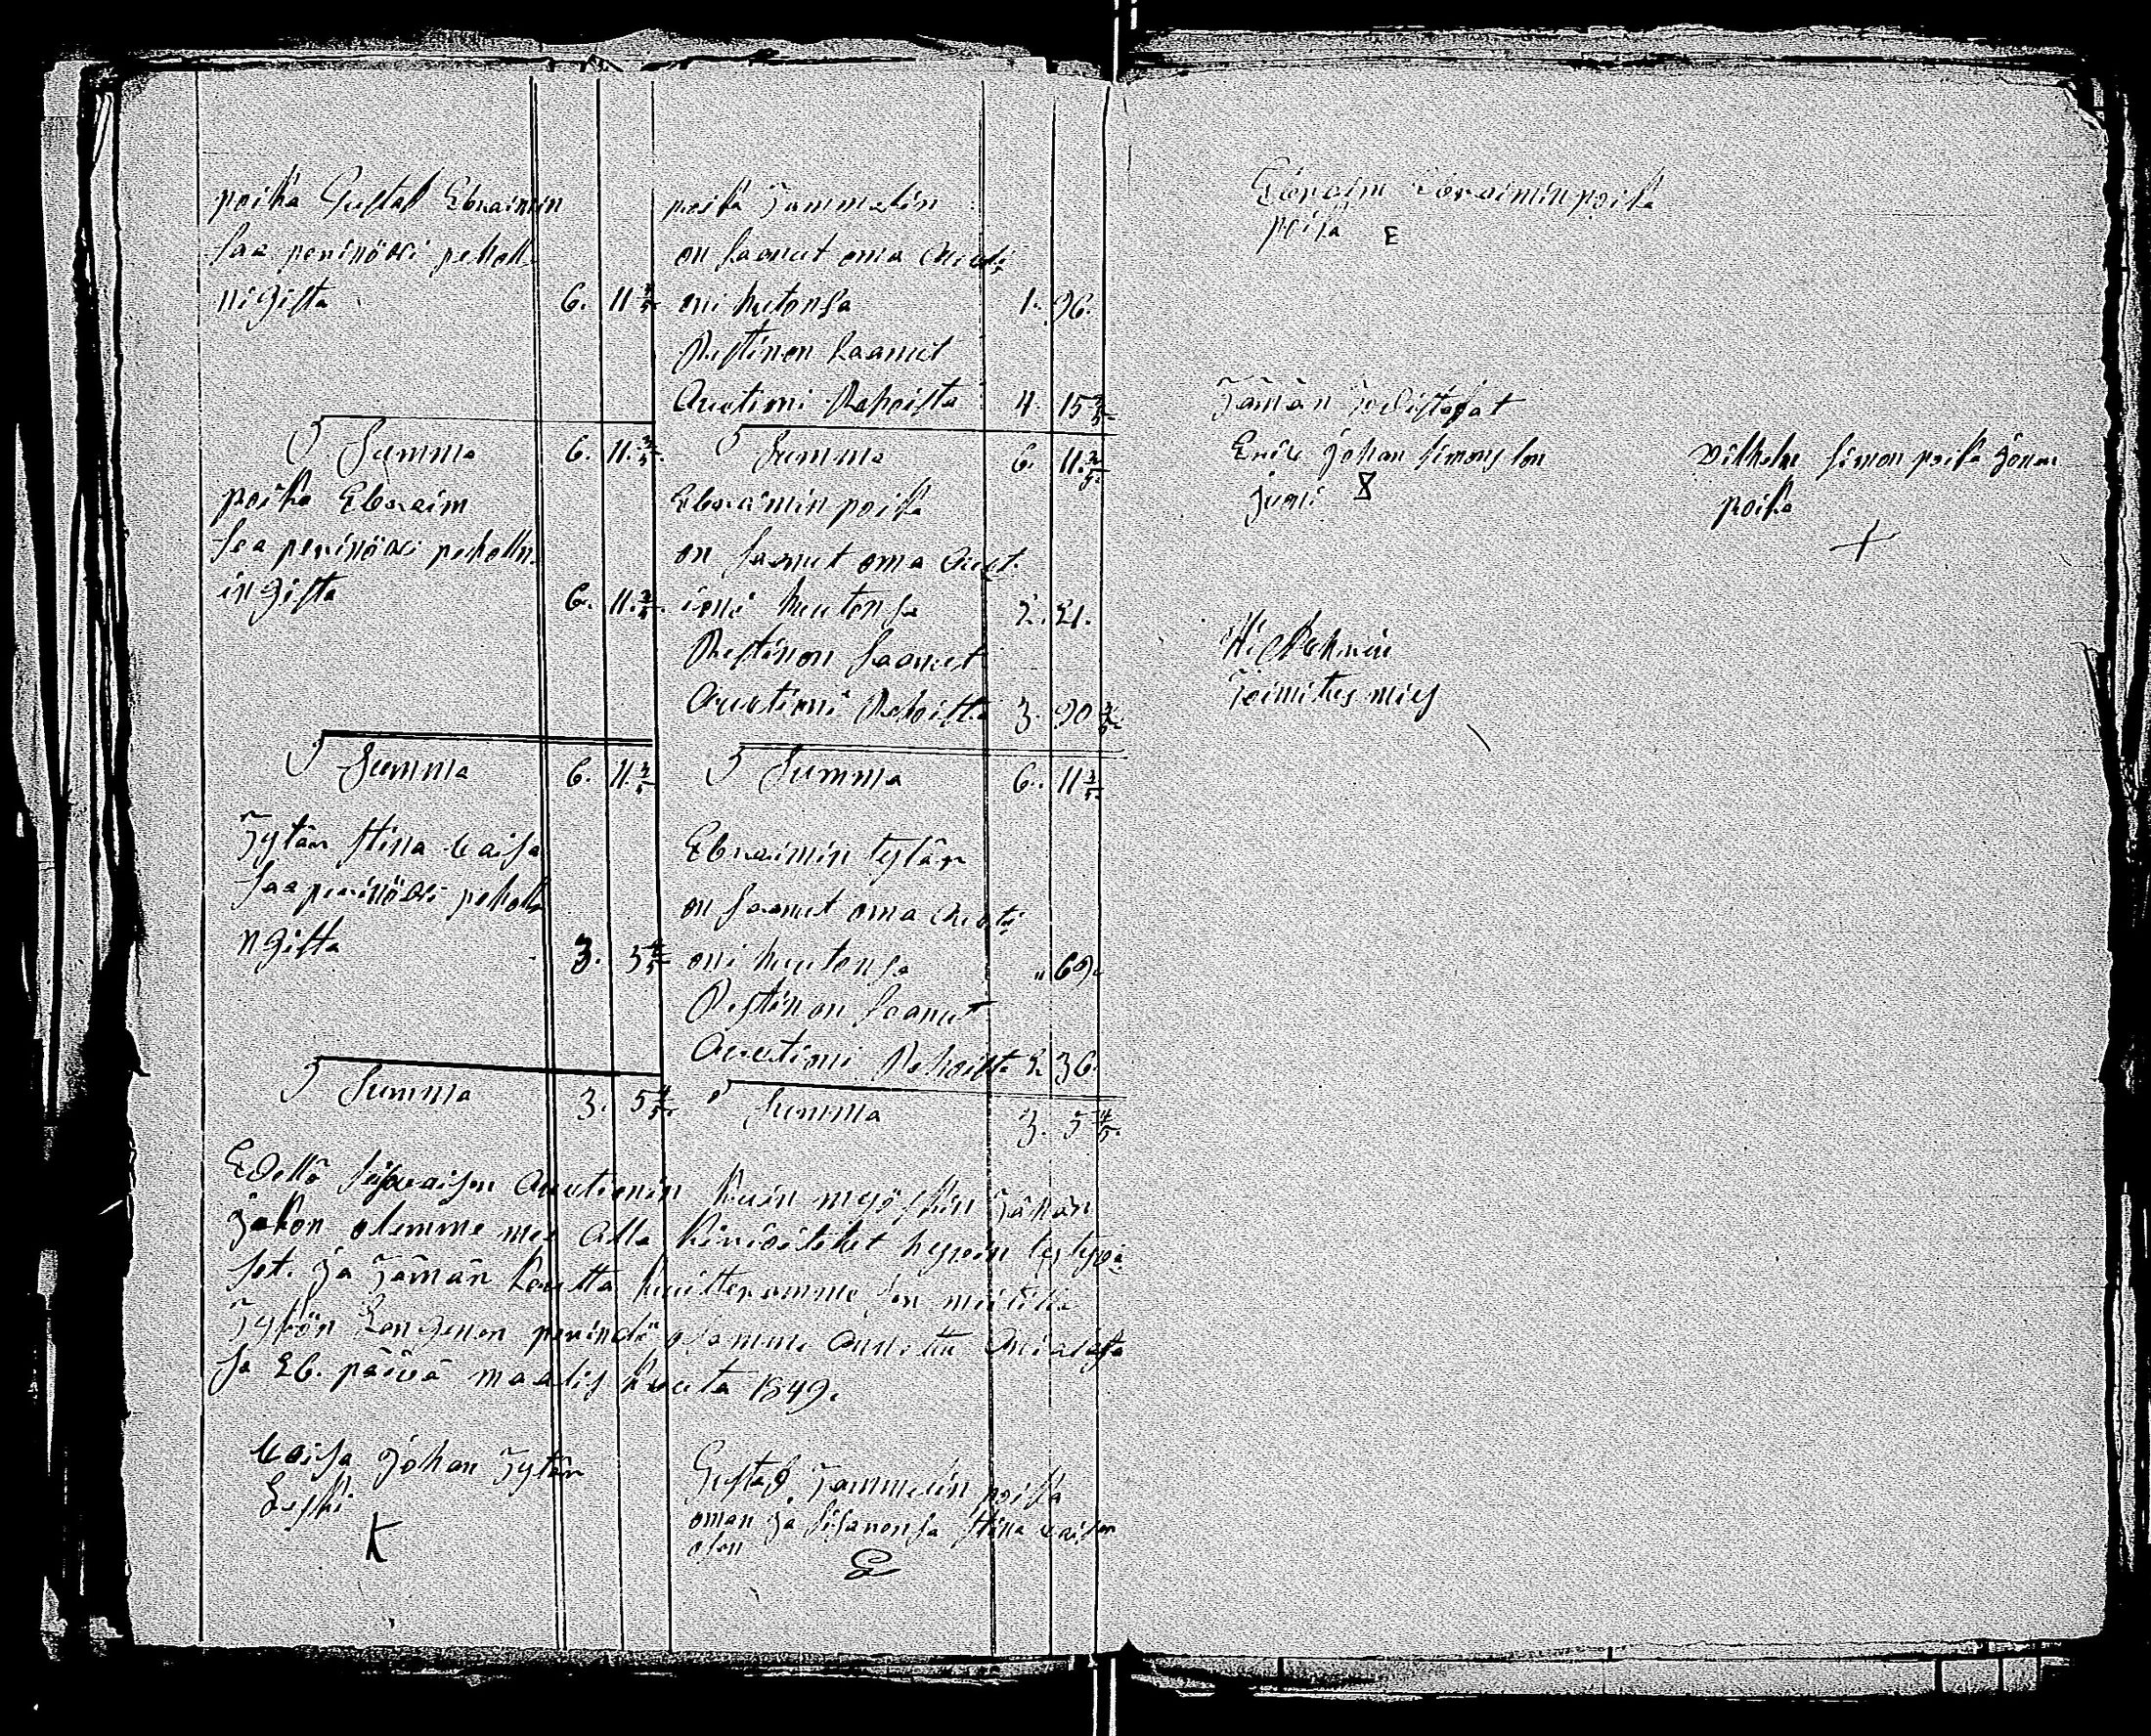 poika Gustaf Ebraimin
saa perinöxi peholli
nigista 6. 11 3/5
Summa 6. 11. 3/5.
poika Ebraim
saa perinöxi peholli
ingista 6. 11. 3/5.
Summa 6. 11. 3/5
Tytär Stina Caisa
saa perinöxi peholli
ngista 3. 5 4/5
Summa 3. 5 4/5.
poika Tammelin
on saanut oma Aucti
oni huutonsa 1. 96.
Restinon saanut
Auctioni Rahoista 4. 15 3/5
Summa 6. 11. 3/5
Ebraimin poika
on saanut oma Auct
ioni huutonsa 2. 21.
Restinon saanut
Auctioni Rahoista 3. 90 3/5
Summa 6. 11 3/5
Ebraimin tytär
on saanut oma Aucti
oni huutonsa " 69.
Restinon saanut
Auctioni Rahoista 2. 36.
Summa 3. 5 4/5.
Edellä Auctionin kuin myöskin Tähän
Jakon olemme me Alla kirjoitetut hyvin tytyvä
set. Ja Tämän kautta kuitteramme sen
Tytyön perindö osamme
sa 26. päivä maalis kuuta 1849.
Caisa Johan Tytär
Leski
K
Gustaf Tammelin poika
oman ja sisarensa Stina Caisan
E
Ebraim Ebraimin poika
poika E
Tämän todistavat
Eric Johan Simonsson
Juoni 8
Vilhelm Simon poika Jönen
poika
+
Toimitus mies